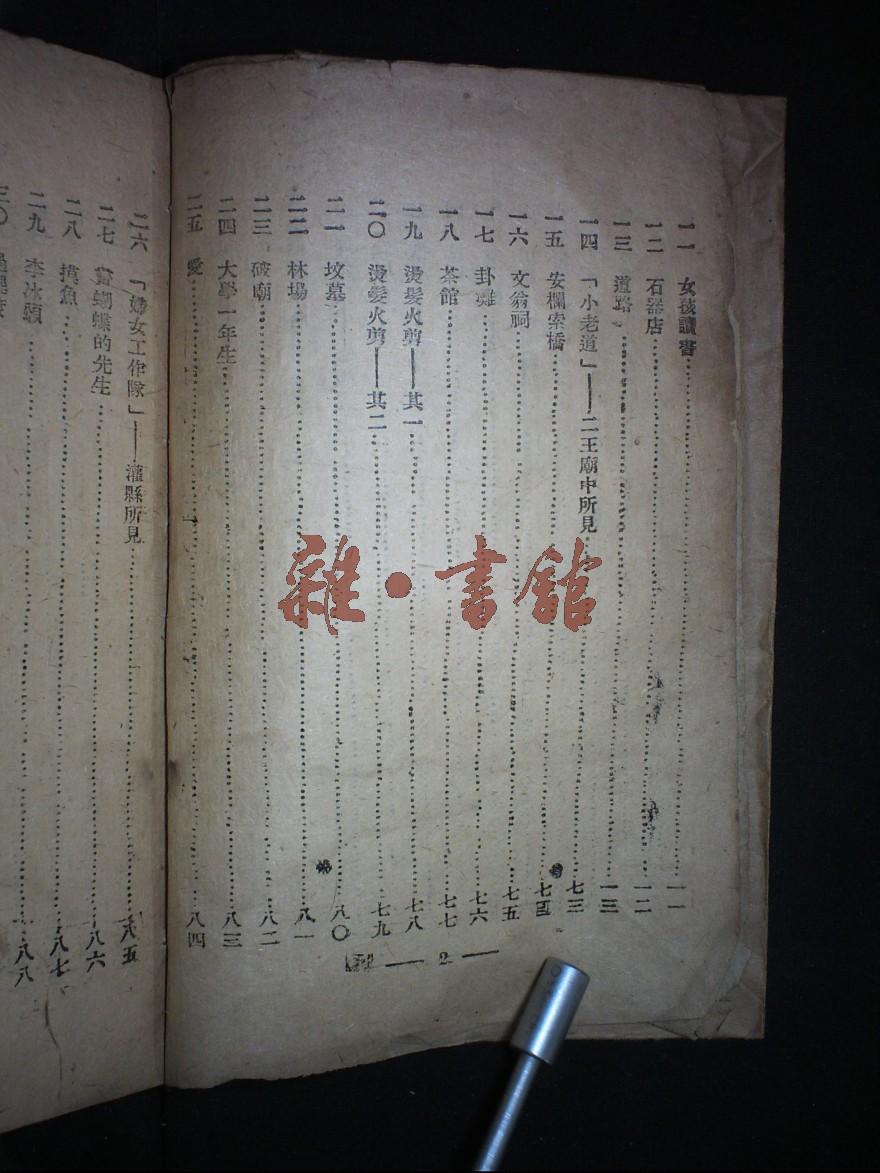 一一 女孩讀書 一一
一二 石器店 一二
一三 道路 一三
一四 「小老道」——二王廟中所見 七三
一五 安欄索橋
一六 文翁祠 七五
一七 卦攤 七六
一八 茶館 七七
一九 燙髮火剪——其一 七八
二〇 燙髮火剪——其二 七九
二一 坟墓 八〇
二二 林場 八一
二三 破廟 八二
二四 大學一年生 八三
二五 愛 八四
— 2 —
二六 「婦女工作隊」——灌縣所見 八五
二七 蝴蝶的先生 八六
二八 摸魚 八七
二九 李冰 八八
三〇
雜·書館